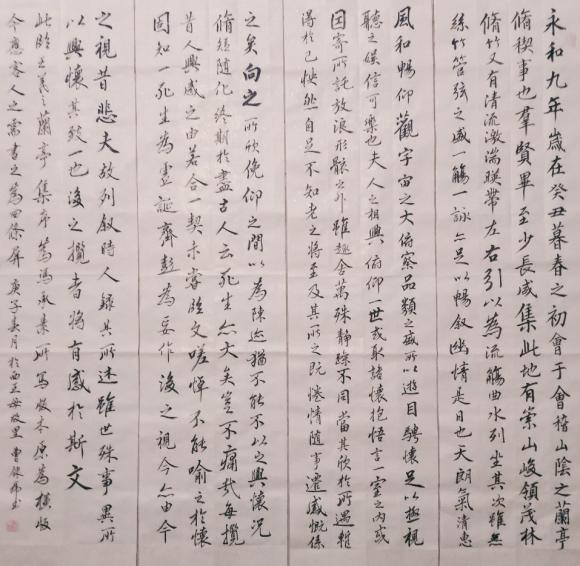 永和九年歲在癸丑暮春之初會于會稽山陰之蘭亭
脩稧事也羣賢畢至少長咸集此地有崇山峻領茂林
脩竹又有清流激湍暎帶左右引以為流觴曲水列坐其次雖無
絲竹管弦之盛一觴一詠亦足以暢叙幽情是日也天朗氣清惠
風和暢仰觀宇宙之大俯察品類之盛所以遊目騁懷足以極視
聽之娛信可樂也夫人之相與俯仰一世或取諸懷抱悟言一室之內或
因寄所託放浪形骸之外雖趣舍萬殊静躁不同當其欣於所遇暫
得於己怏然自足不知老之將至及其所之既惓情隨事遷感慨係
之矣向之所欣俛仰之間以為陳迹猶不能不以之興懷況
脩短隨化終期於盡古人云死生亦大矣豈不痛哉每攬
昔人興感之由若合一契未嘗臨文嗟悼不能喻之於懷
固知一死生為虛誕齊彭為妄作後之視今亦由今
之視昔悲夫故列叙時人録其所述雖世殊事異所
以興懷其致一也後之攬者將有感於斯文
此臨王羲之蘭亭集序為馮承素所寫版本原為橫版
今應客人之需書之為四條屏庚子 月於西王母故里曹銀 書